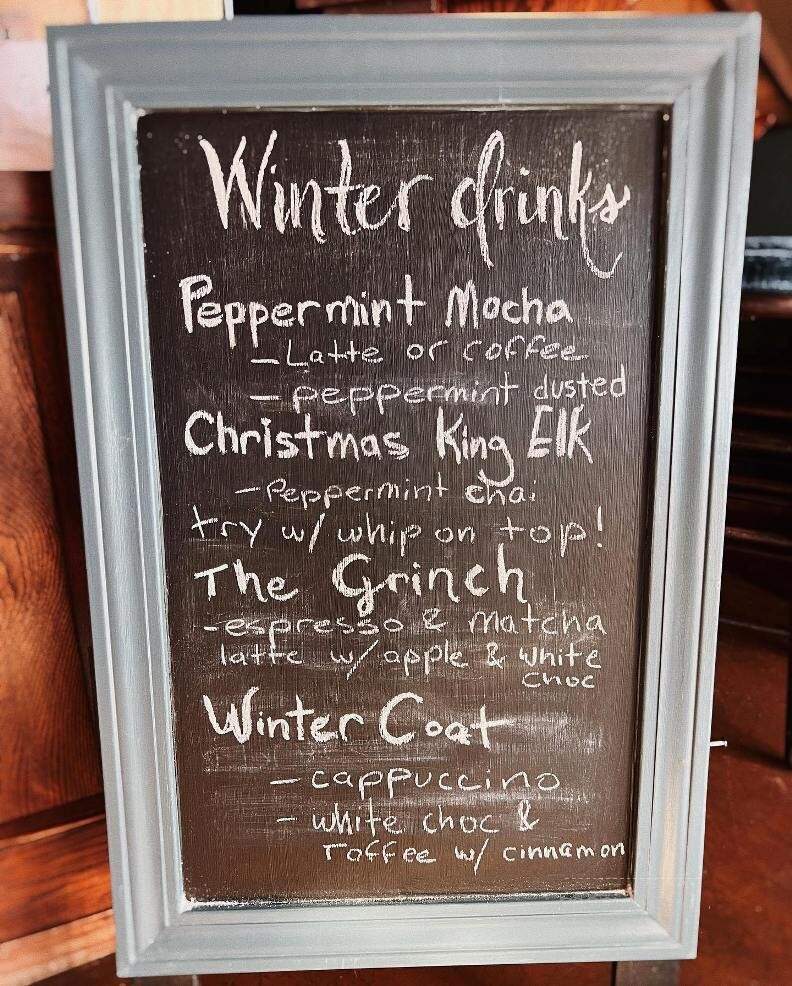 Winter drinks
Peppermint Mocha
- Latte or coffee
- peppermint dusted
Christmas King Elk
- Peppermint chai
try w/ whip on top!
The Grinch
- espresso & matcha
latte w/ apple & white
choc
Winter Coat
- cappuccino
- white choc &
Toffee w/ cinnamon